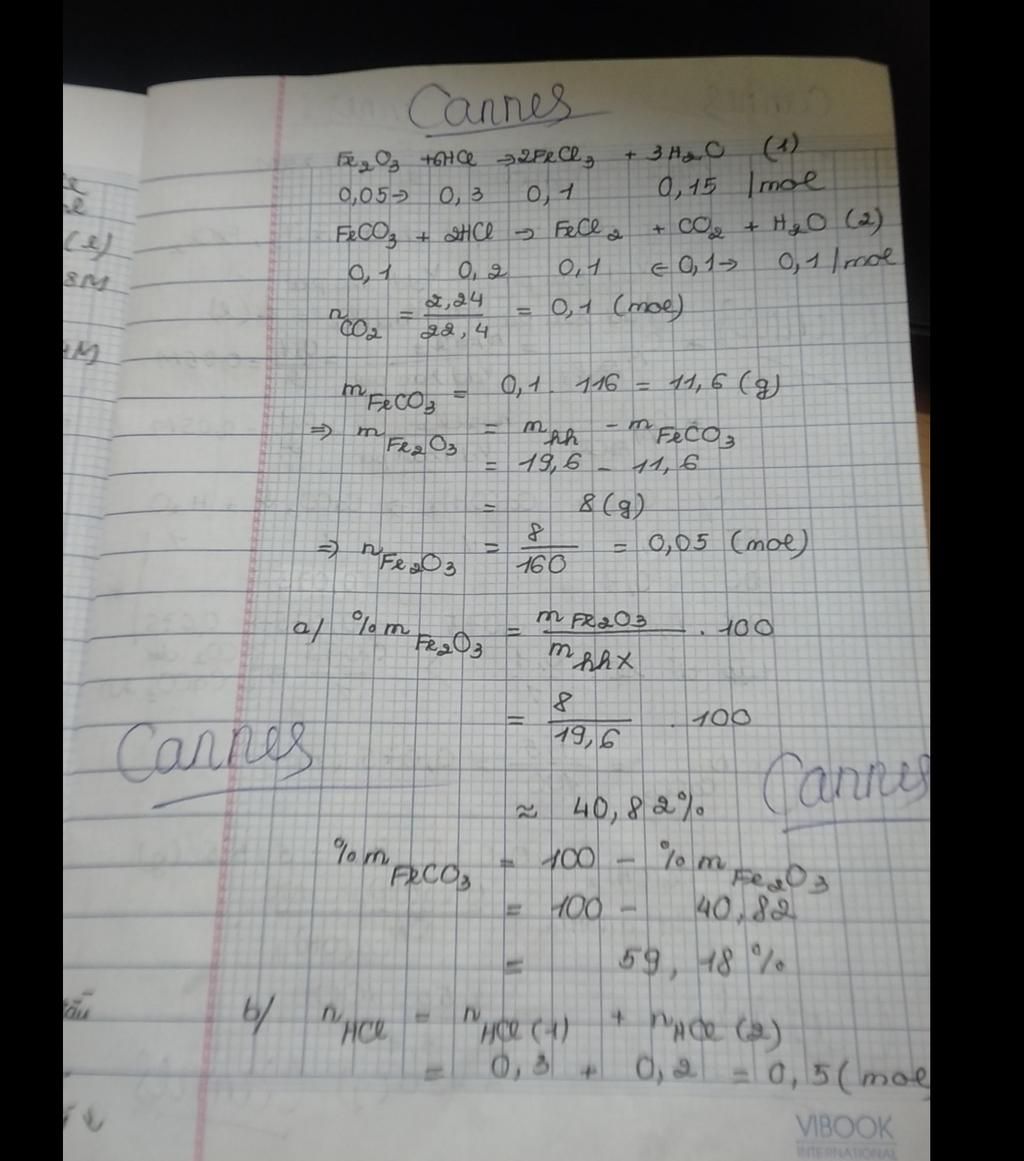 Cannes
Fe₂O₃ + 6HCl → 2FeCl₃ + 3H₂O (1)
0,05→ 0,3 0,1 0,15 /mol
FeCO₃ + 2HCl → FeCl₂ + CO₂ + H₂O (2)
0,1 0,2 0,1 ←0,1→ 0,1 /mol
n CO₂ = 2,24 / 22,4 = 0,1 (mol)
m FeCO₃ = 0,1 . 116 = 11,6 (g)
⇒ m Fe₂O₃ = m hh - m FeCO₃
= 19,6 - 11,6
= 8 (g)
⇒ n Fe₂O₃ = 8 / 160 = 0,05 (mol)
a/ %m Fe₂O₃ = m Fe₂O₃ / m hhX . 100
= 8 / 19,6 . 100
Cannes
Cannes
≈ 40,82%
%m FeCO₃ = 100 - %m Fe₂O₃
= 100 - 40,82
= 59,18%
b/ n HCl = n HCl (1) + n HCl (2)
= 0,3 + 0,2 = 0,5 (mol
VIBOOK
INTERNATIONAL
(l)
8M